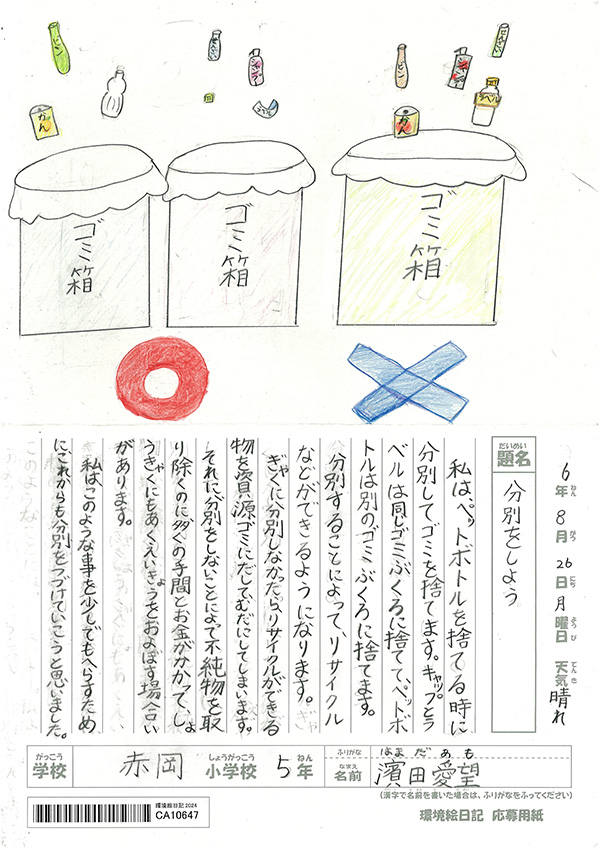 ビン
かん
せんざい
シャンプー
ラベル
ビン
かん
シャンプー
せんざい
ラベル
ゴミ箱
ゴミ箱
ゴミ箱
6年8月26日月曜日 天気 晴れ
ねん がつ にち ようび てんき
だいめい
題名
分別をしよう
私は、ペットボトルを捨てる時に
分別してゴミを捨てます。キャップとラ
ベルは同じゴミぶくろに捨てて、ペットボ
トルは別のゴミぶくろに捨てます。
分別することによって、リサイクル
などができるようになります。
ぎゃくに分別しなかったら、リサイクルができる
物を資源ゴミにだしてむだにしてしまいます。
それに、分別をしないことによって不純物を取
り除くのに多くの手間とお金がかかって、しょ
うきゃくにもあくえいきょうをおよぼす場合い
があります。
私はこのような事を少しでもへらすため
に、これからも分別をつづけていこうと思いました。
がっこう しょうがっこう ねん
学校 赤岡 小学校 5年
ふりがな はまだあも
なまえ
名前 濱田愛望
(漢字で名前を書いた場合は、ふりがなをふってください)
環境絵日記2024
CA10647
環境絵日記 応募用紙